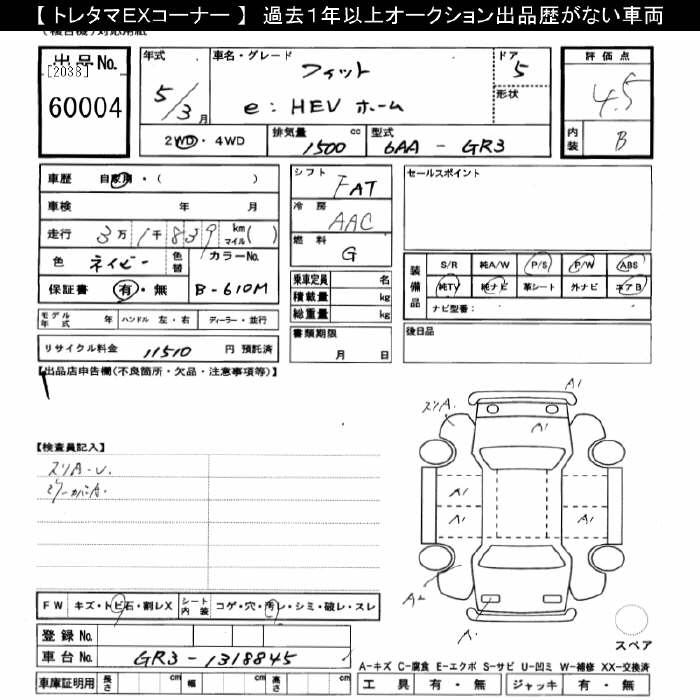 【 トレタマEXコーナー 】 過去1年以上オークション出品歴がない車両
出品No.
[2038]
60004
年式
5/3月
車名・グレード
フィット
e：HEV ホーム
ドア
5
形状
評価点
4.5
内装
B
2WD・4WD
排気量
1500 cc
型式
6AA－GR3
車歴
自家用・( )
車検 年 月
走行 3万1千839 km マイル( )
色
ネイビー
色替
カラーNo.
B-610M
保証書
有・無
シフト
FAT
冷房
AAC
燃料
G
乗車定員 名
積載量 kg
総重量 kg
書類期限
月 日
セールスポイント
装備品
S/R 純A/W P/S P/W ABS
純TV 純ナビ 革シート 外ナビ エアB
ナビ型番：
後日品
モデル年式 年
ハンドル 左・右
ディーラー・並行
リサイクル料金 11510 円 預託済
【出品店申告欄(不良箇所・欠品・注意事項等)】
【検査員記入】
スリA-U.
ミラーカバーA.
A1
スリA.
A1
A1
A1
A1
A1
A2
A.
スペア
FW
キズ・トビ石・割レX
シート内装
コゲ・穴・汚レ・シミ・破レ・スレ
登録No.
車台No.
GR3-1318845
車庫証明用
長さ cm
幅 cm
高さ cm
A-キズ C-腐食 E-エクボ S-サビ U-凹ミ W-補修 XX-交換済
工具 有・無
ジャッキ 有・無